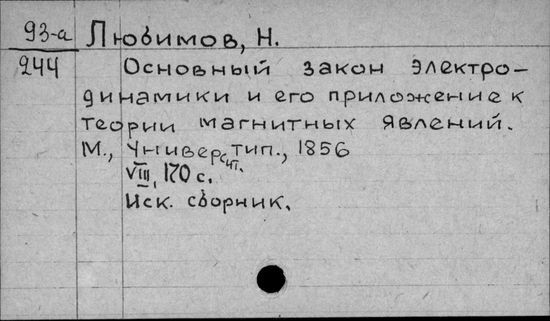 93-а Любимов, Н.
244 Основный закон электро-
динамики и его приложение к
теории магнитных явлений.
М., Университ. тип., 1856
VIII, 170 с.
Иск. сборник.